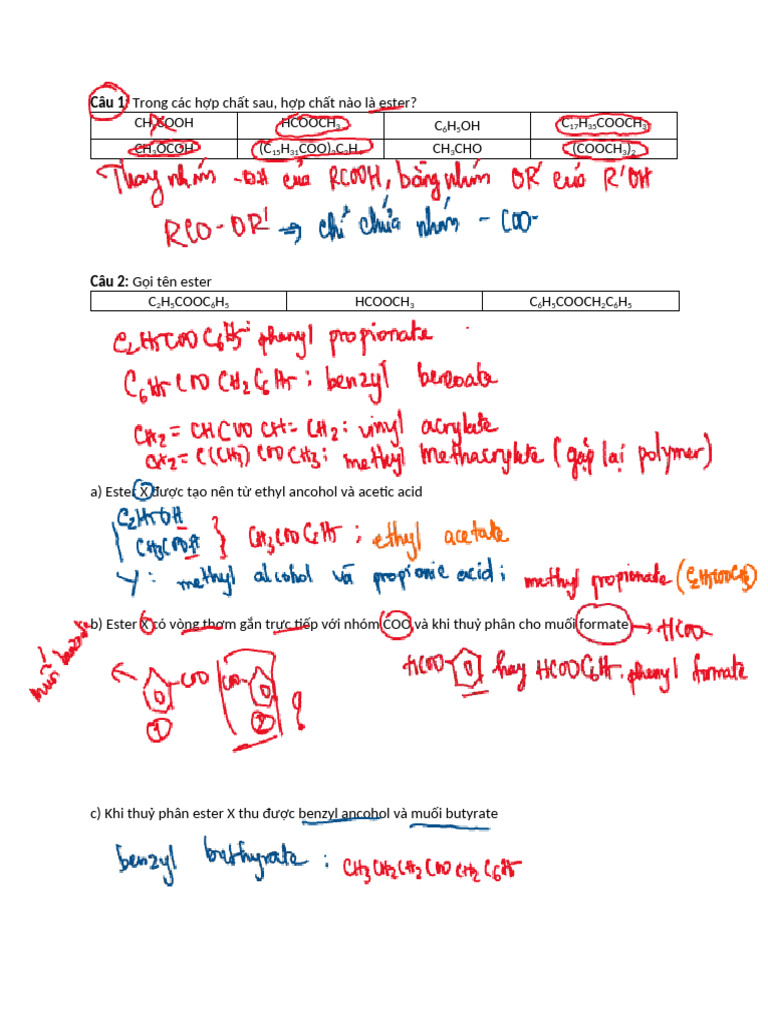 Câu 1: Trong các hợp chất sau, hợp chất nào là ester?
CH₃COOH HCOOCH₃ C₆H₅OH C₁₇H₃₅COOCH₃
CH₃OCOH (C₁₅H₃₁COO)₃C₃H₅ CH₃CHO (COOCH₃)₂
Thay nhóm -OH của RCOOH, bằng nhóm OR' của R'OH
RCO-OR' → chỉ chứa nhóm - COO-
Câu 2: Gọi tên ester
C₂H₅COOC₆H₅ HCOOCH₃ C₆H₅COOCH₂C₆H₅
C₂H₅COOC₆H₅: phenyl propionate
C₆H₅COOCH₂C₆H₅: benzyl benzoate
CH₂=CHCOOCH=CH₂: vinyl acrylate
CH₂=C(CH₃)COOCH₃: methyl methacrylate (gặp lại polymer)
a) Ester X được tạo nên từ ethyl ancohol và acetic acid
C₂H₅OH
CH₃COOH } CH₃COOC₂H₅: ethyl acetate
Y: methyl alcohol và propionic acid: methyl propionate (C₂H₅COOCH₃)
b) Ester X có vòng thơm gắn trực tiếp với nhóm COO và khi thuỷ phân cho muối formate → HCOO-
muối benzoate
COO COO- ?
① ②
HCOO- hay HCOOC₆H₅: phenyl formate
c) Khi thuỷ phân ester X thu được benzyl ancohol và muối butyrate
benzyl buthyrate : CH₃CH₂CH₂COOCH₂C₆H₅